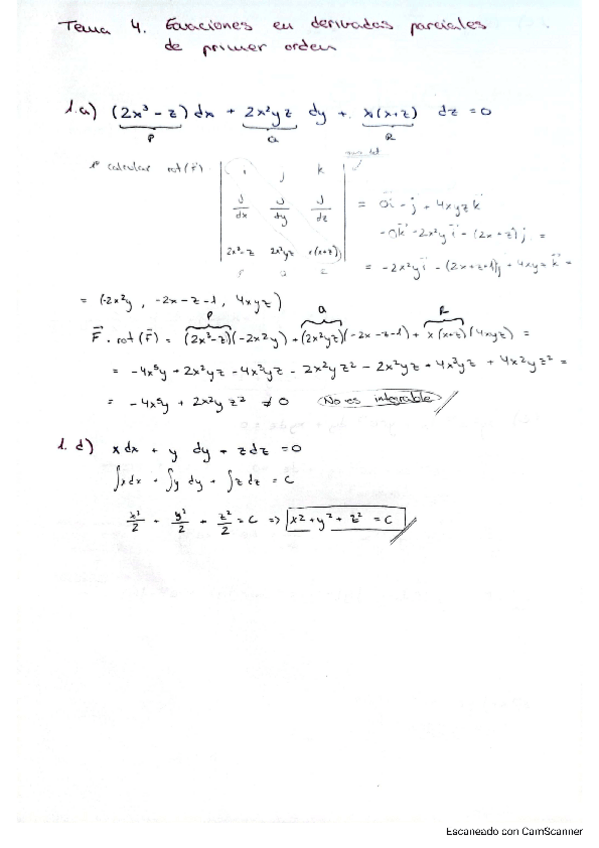 Tema 4. Ecuaciones en derivadas parciales
de primer orden
1.a) (2x³ - z) dx + 2x²yz dy + x(x+z) dz = 0
P Q R
calcular rot(F)
i j k
d/dx d/dy d/dz
2x³-z 2x²yz x(x+z)
= 0i - j + 4xyz k
- 0k - 2x²y i - (2x+z) j =
= -2x²y i - (2x+z+1) j + 4xyz k =
= (-2x²y, -2x-z-1, 4xyz)
P Q R
F · rot(F) = (2x³-z)(-2x²y) + (2x²yz)(-2x-z-1) + x(x+z)(4xyz) =
= -4x⁵y + 2x²yz - 4x³yz - 2x²yz² - 2x²yz + 4x³yz + 4x²yz² =
= -4x⁵y + 2x²yz² ≠ 0 No es integrable
1. d) x dx + y dy + z dz = 0
∫x dx + ∫y dy + ∫z dz = C
x²/2 + y²/2 + z²/2 = C => x² + y² + z² = C
Escaneado con CamScanner